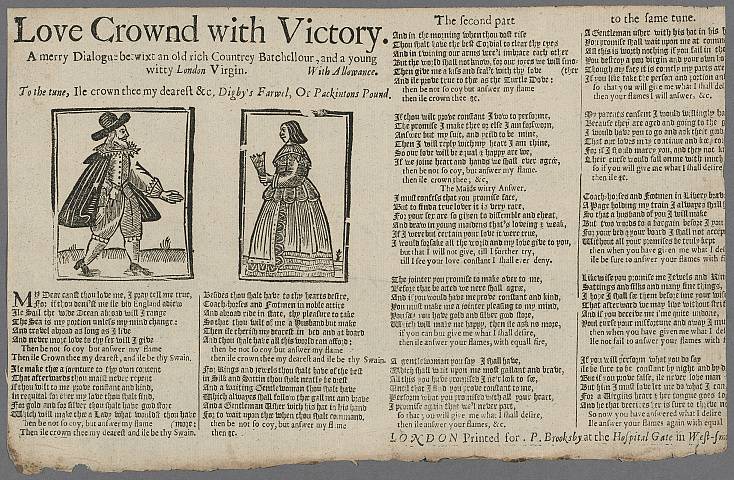 Love Crownd with Victory.
A merry Dialogue betwixt an old rich Countrey Batchellour, and a young
witty London Virgin. With Allowance.
To the tune, Ile crown thee my dearest &c, Digby's Farwel, Or Packintons Pound.
MY Dear canst thou love me, I pray tell me true,
For if thou deni'st me ile bid England adieu
Ile Sail the wide Ocean abroad will I range
The Sea is my portion unless my mind change:
And travel abroad as long as I live
And never more love to thy sex will I give
Then be not so coy but answer my flame
Then ile Crown thee my dearest, and ile be thy Swain.
Ile make thee a joynture to thy own content
That afterwards thou mayst never repent
if thou wilt to me prove constant and kind,
in requital for ever my love thou shalt find,
For gold and for silver thou shalt have good store
Which will make thee a Lady what would'st thou have
Then be not so coy, but answer my flame (more:
Then ile crown thee my dearest and ile be thy Swain.
Besides thou shalt have to thy hearts desire,
Coach-horses and Footmen in noble attire
And abroad ride in state, thy pleasure to take
So that thou wilt of me a Husband but make
Then ile cherish my dearest in bed and at board
And thou shalt have all this world can afford:
then be not so coy but answer my flame
then ile crown thee my dearest and ile be thy Swain.
For Rings and Jewels thou shalt have of the best
In Silk and Sattin thou shalt neatly be drest
And a waiting Gentlewoman thou shalt have
Which always shall follow thee gallant and brave
And a Gentleman Usher with his hat in his hand
For to wait upon thee when thou shalt command,
then be not so coy, but answer my flame
then &c.
The second part
And in the morning when thou dost rise
Thou shalt have the best Cordial to clear thy eyes
And in twining our arms wee'l imbrace each other
But the world shall not know, for our loves we will smo-
Then give me a kiss and seal't with thy love (ther
And ile prove true to thee as the Turtle Dove:
then be not so coy but answer my flame
then ile crown thee &c.
If thou wilt prove constant I vow to performe,
The promise I make thee or else I am forsworn,
Answer but my suit, and yeild to be mine,
Then I will reply with my heart I am thine,
So our love will be equal & happy are we,
If we joine heart and hands we shall ever agree,
then be not so coy, but answer my flame.
then ile crown thee; &c,
The Maids witty Answer.
I must confess that you promise fair,
But to find a true lover it is very rare,
For your sex are so given to dissemble and cheat,
And draw in young maidens that's loveing & weak,
If I were but certain your love it were true,
I would forsake all the world and my love give to you,
but that I will not give, till I further try,
till I see your love constant I shall ever deny.
The joynter you promise to make over to me,
Before that be and we were shall agree,
And if you would have me prove constant and kind,
You must make me a jointer pleasing to my mind,
You say you have gold and silver good store,
Which will make me happy, then ile ask no more.
if you can but give me what I shall desire,
then ile answer your flames, with equall fire,
A gentlewoman you say I shall have,
Which shall wait upon me most gallant and brave,
All this you have promised I ne'r look to see,
Untill that I find you prove constant to me,
Perform what you promised with all your heart,
I promise again that we'l never part,
so that you will give me what I shall desire,
then ile answer your flames, &c,
to the same tune.
A Gentleman usher with his hat in his h
You promise shall wait upon me at comm
All this is worth nothing if you fail in the
You destroy a pen virgin and your own lo
Though my face it is comely my parts are
If you like take the person and portion an
so that you will give me what I shall del
then your flames I will answer, &c.
My parents consent I would willingly ha
Because they are aged and going to the g
I would have you to go and ask their good
That our loves may continue and be
For if I should marry you, and they not k
Their curse would fall on me with much
so if you will give me what I shall desire
then ile &c.
Coach-horses and Footmen in Livery brave
A Page holding my train I allways shall
So that a husband of you I will make
But two words to a bargain before I you
For your bed & your board I shall not accept
Without all your promises be truly kept
then when you have given me what I de
ile be sure to answer your flames with fi
Likewise you promise me Jewels and Rin
Sattings and silks and many fine things,
I hope I shall see them before time your wife
That afterward we may live without strife
And if you deceive me i'me quite undone,
Youl curse your misfortune and away I mu
then when you have given me what I de
Ile not fail to answer your flames with
If you will perform what you do say
ile be sure to be constant by night and by d
But if you prove false, ile never love man
But this I must love let me do what I can
For a Virgins heart & her tongue goes to
And he that deceives her is sure to
So now you have answered what I desire
Ile answer your flames again with equal
LONDON Printed for . P. Brooksby at the Hospital Gate in West-sm